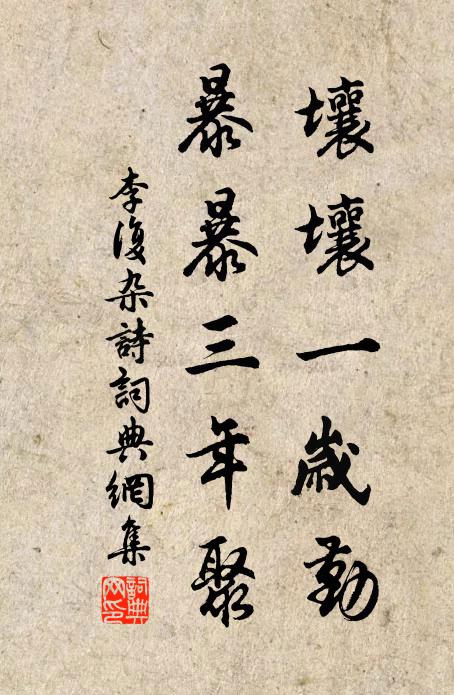 壤壤一歲勤
暴暴三年聚
李復杂詩詞典網集
詞典网印